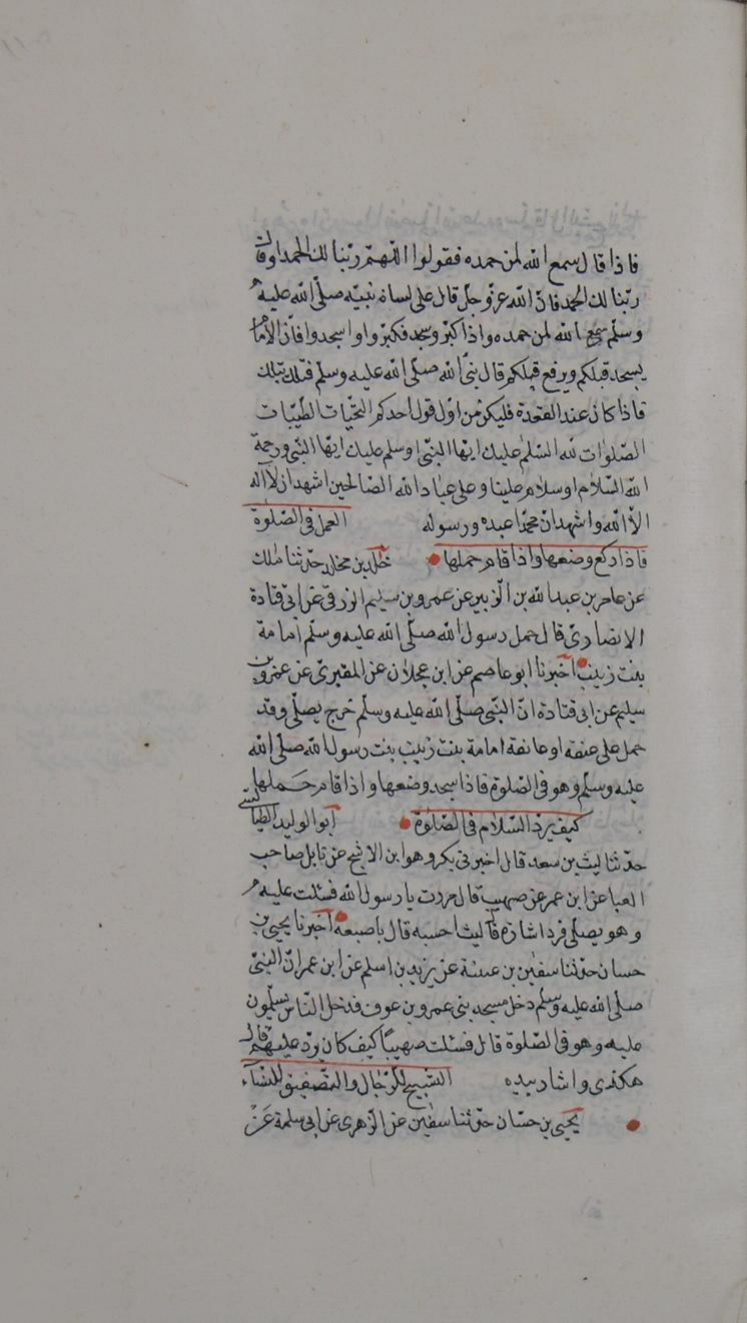 فاذا قال سمع الله لمن حمده فقولوا اللهم ربنا لك الحمد او قال
ربنا لك الحمد فان الله عز وجل قال على لسان نبيه صلى الله عليه
وسلم سمع الله لمن حمده واذا كبر وسجد فكبروا واسجدوا فان الامام
يسجد قبلكم ويرفع قبلكم قال نبى الله صلى الله عليه وسلم فتلك بتلك
فاذا كان عند القعدة فليكن من اول قول احدكم التحيات الطيبات
الصلوات لله السلم عليك ايها النبى او سلم عليك ايها النبى ورحمة
الله السلام او سلام علينا وعلى عباد الله الصالحين اشهد ان لا اله
الا الله واشهد ان محمدا عبده ورسوله العمل فى الصلوة
فاذا ركع وضعها واذا قام حملها خلد بن مخلد حدثنا ملك
عن عامر بن عبد الله بن الزبير عن عمرو بن سليم الزرقى عن ابى قتادة
الانصارى قال حمل رسول الله صلى الله عليه وسلم امامة
بنت زينب اخبرنا ابو عاصم عن ابن عجلان عن المقبرى عن عمرو بن
سليم عن ابى قتادة ان النبى صلى الله عليه وسلم خرج يصلى وقد
حمل على عنقه او عاتقه امامة بنت زينب بنت رسول الله صلى الله
عليه وسلم وهو فى الصلوة فاذا سجد وضعها واذا قام حملها
كيف يرد السلام فى الصلوة ابو الوليد الطيالسى
حدثنا ليث بن سعد قال اخبرنى بكر وهو ابن الاشج عن نابل صاحب
العبا عن ابن عمر عن صهيب قال مررت يا رسول الله فسلت عليه
وهو يصلى فرد اشارة قال ليث احسبه قال باصبعه اخبرنا يحيى بن
حسان حدثنا سفين بن عيينة عن زيد بن اسلم عن ابن عمر ان النبى
صلى الله عليه وسلم دخل مسجد بنى عمرو بن عوف فدخل الناس يسلمون
عليه وهو فى الصلوة قال فسئلت صهيبا كيف كان يرد عليهم قال
هكذى واشار بيده التسبيح للرجال والتصفيق للنساء
يحيى بن حسان حدثنا سفين عن الزهرى عن ابى سلمة عن